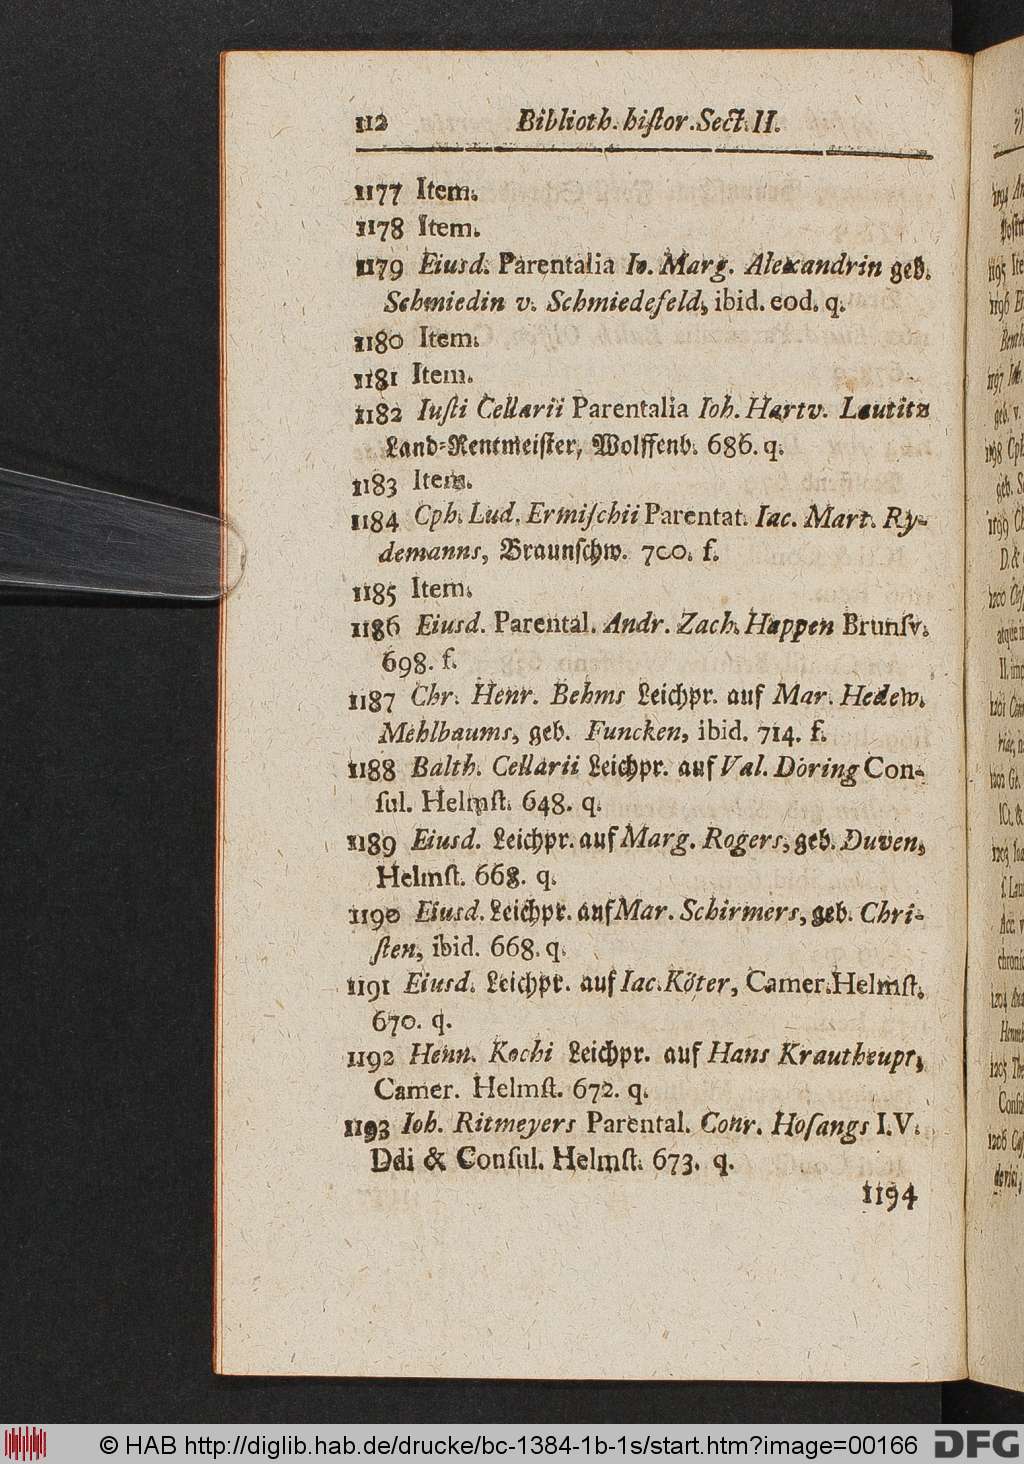 112 Biblioth. histor. Sect. II.
1177 Item.
1178 Item.
1179 Eiusd. Parentalia Io. Marg. Alexandrin geb.
Schmiedin v. Schmiedefeld, ibid. eod. q.
1180 Item.
1181 Item.
1182 Iusti Cellarii Parentalia Ioh. Hartv. Lautitz
Land-Rentmeister, Wolffenb. 686. q.
1183 Item.
1184 Cph. Lud. Ermischii Parentat. Iac. Mart. Ry-
demanns, Braunschw. 700. f.
1185 Item.
1186 Eiusd. Parental. Andr. Zach. Happen Brunsv.
698. f.
1187 Chr. Henr. Behms Leichpr. auf Mar. Hedew.
Mehlbaums, geb. Funcken, ibid. 714. f.
1188 Balth. Cellarii Leichpr. auf Val. Döring Con-
sul. Helmst. 648. q.
1189 Eiusd. Leichpr. auf Marg. Rogers, geb. Duven,
Helmst. 668. q.
1190 Eiusd. Leichpr. auf Mar. Schirmers, geb. Chri-
sten, ibid. 668. q.
1191 Eiusd. Leichpr. auf Iac. Köter, Camer. Helmst.
670. q.
1192 Henn. Kochi Leichpr. auf Hans Krautheupt,
Camer. Helmst. 672. q.
1193 Ioh. Ritmeyers Parental. Conr. Hosangs I. V.
Ddi & Consul. Helmst. 673. q.
1194
© HAB http://diglib.hab.de/drucke/bc-1384-1b-1s/start.htm?image=00166 DFG